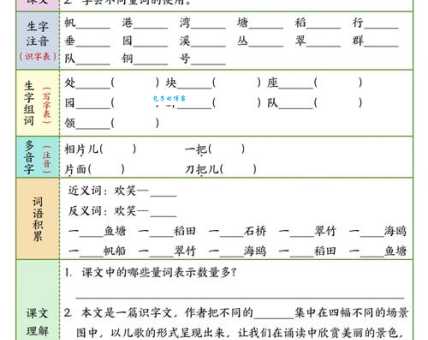 课文 2. 学会不同量词的使用。
生字注音（识字表）
帆____ 港____ 湾____ 塘____ 稻____ 行____
垂____ 园____ 溪____ 丛____ 翠____ 群____
队____ 铜____ 号____
生字组词（写字表）
处____( ) 块____( ) 座____( )
园____( ) ____( ) 队____( )
领____( )
多音字（注音）
相片儿( ) 一把( )
片面( ) 刀把儿( )
词语积累
近义词：欢笑—____
反义词：欢笑—____
一____鱼塘 一____稻田 一____石桥 一____翠竹 一____海鸥
一____帆船 一____翠竹 一____海鸥 一____稻田 一____鱼塘
课文理解
1. 课文中的哪些量词表示数量多？
2. 本文是一篇识字文，作者把不同的______集中在四幅不同的场景
图中，以儿歌的形式呈现出来，让我们在诵读中欣赏美丽的景色，